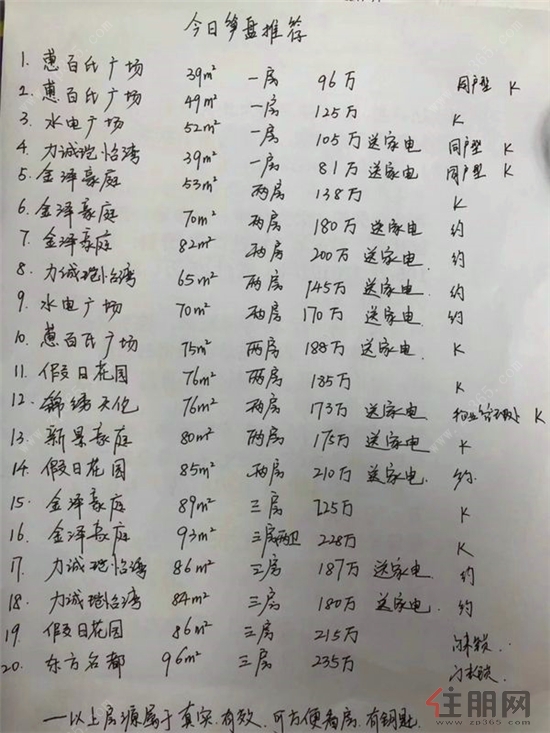 今日笋盘推荐
1. 蒽百氏广场 39m² 一房 96万 同户型 K
2. 蒽百氏广场 49m² 一房 125万 K
3. 水电广场 52m² 一房 105万 送家电 同户型 K
4. 力诚珑怡湾 39m² 一房 81万 送家电 同户型 K
5. 金泽豪庭 53m² 两房 138万 K
6. 金泽豪庭 70m² 两房 180万 送家电 约
7. 金泽豪庭 82m² 两房 200万 送家电. 约
8. 力诚珑怡湾 65m² 两房 145万 送家电. 约
9. 水电广场 70m² 两房 170万 送家电. 约
10. 蒽百氏广场 75m² 两房 188万 送家电. K
11. 假日花园 76m² 两房 185万 K
12. 锦绣天伦 76m² 两房 173万 送家电 K
13. 新景豪庭 80m² 两房 175万 送家电. K
14. 假日花园 85m² 两房 210万 送家电. 约.
15. 金泽豪庭 89m² 三房 225万 K
16. 金泽豪庭 93m² 三房两卫 228万 K
17. 力诚珑怡湾 86m² 三房 187万 送家电 约
18. 力诚珑怡湾 84m² 三房 180万 送家电. 约
19. 假日花园 86m² 三房 215万 门未锁.
20. 东方名都 96m² 三房 235万 门未锁.
一以上房源属于真实.有效.可方便看房.有钥匙.
住朋网
www.zp365.com